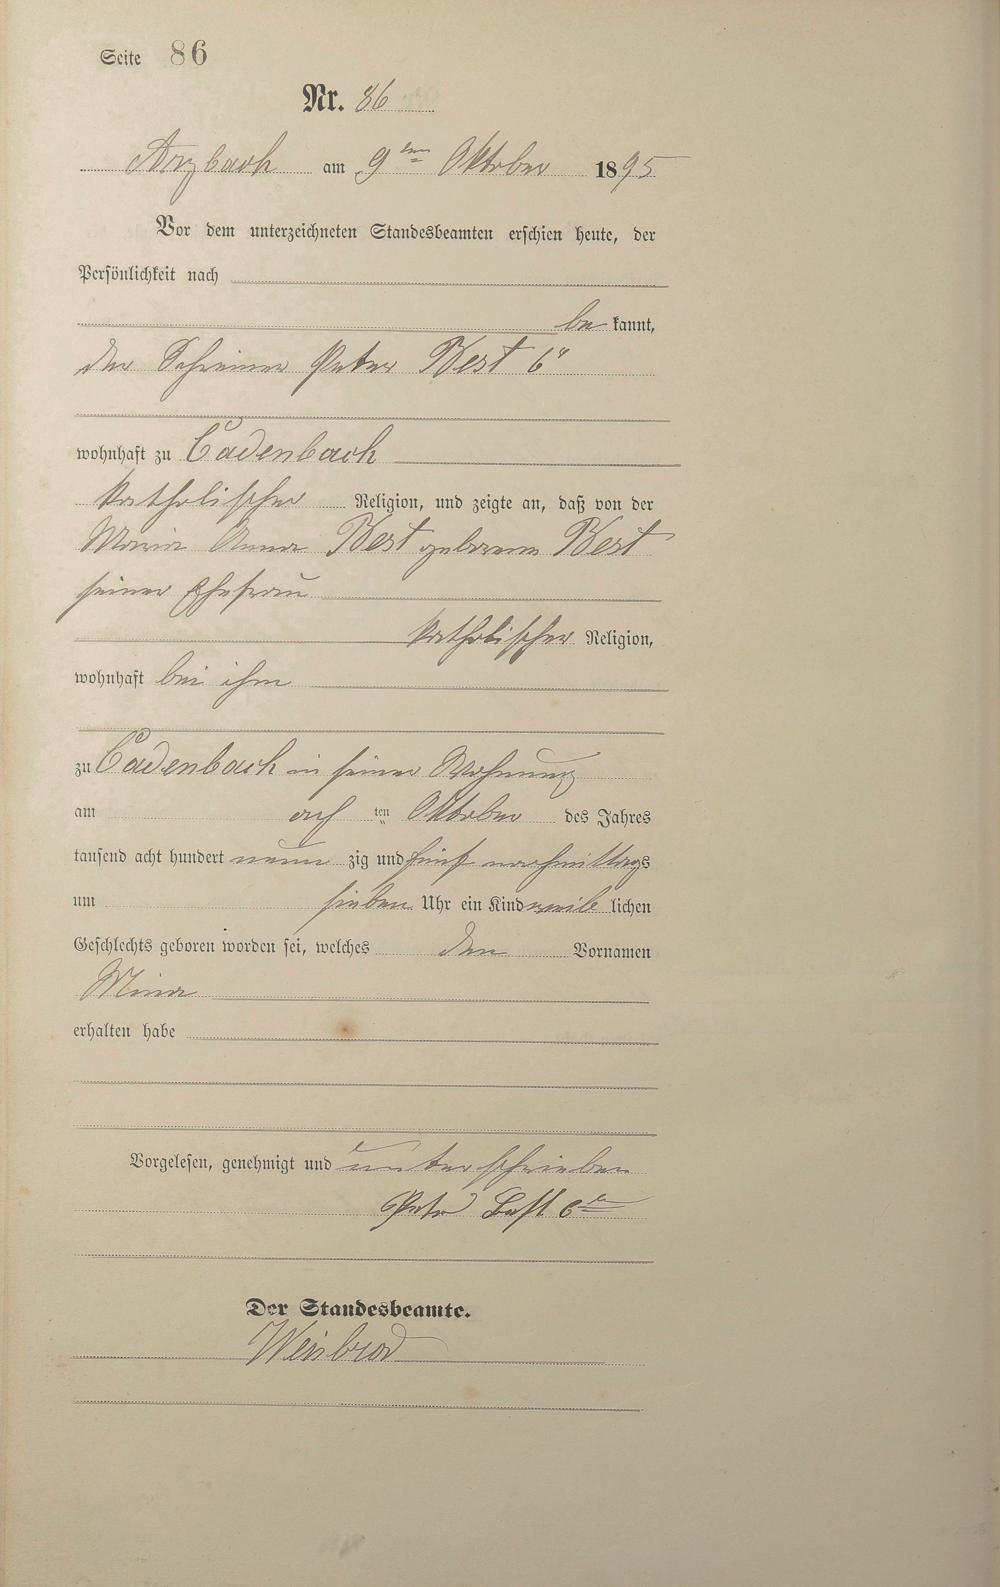 Seite 86
Nr. 86
Arzbach am 9ten Oktober 1895
Vor dem unterzeichneten Standesbeamten erschien heute, der
Persönlichkeit nach
be kannt,
der Schreiner Peter Best 6r
wohnhaft zu Cadenbach
katholischer Religion, und zeigte an, daß von der
Maria Anna Best geborene Best
seiner Ehefrau
katholischer Religion,
wohnhaft bei ihm
zu Cadenbach in seiner Wohnung
am acht ten Oktober des Jahres
tausend acht hundert neun zig und fünf nachmittags
um sieben Uhr ein Kind weib lichen
Geschlechts geboren worden sei, welches den Vornamen
Mina
erhalten habe
Vorgelesen, genehmigt und unterschrieben
Peter Best 6te
Der Standesbeamte.
Weinbrod